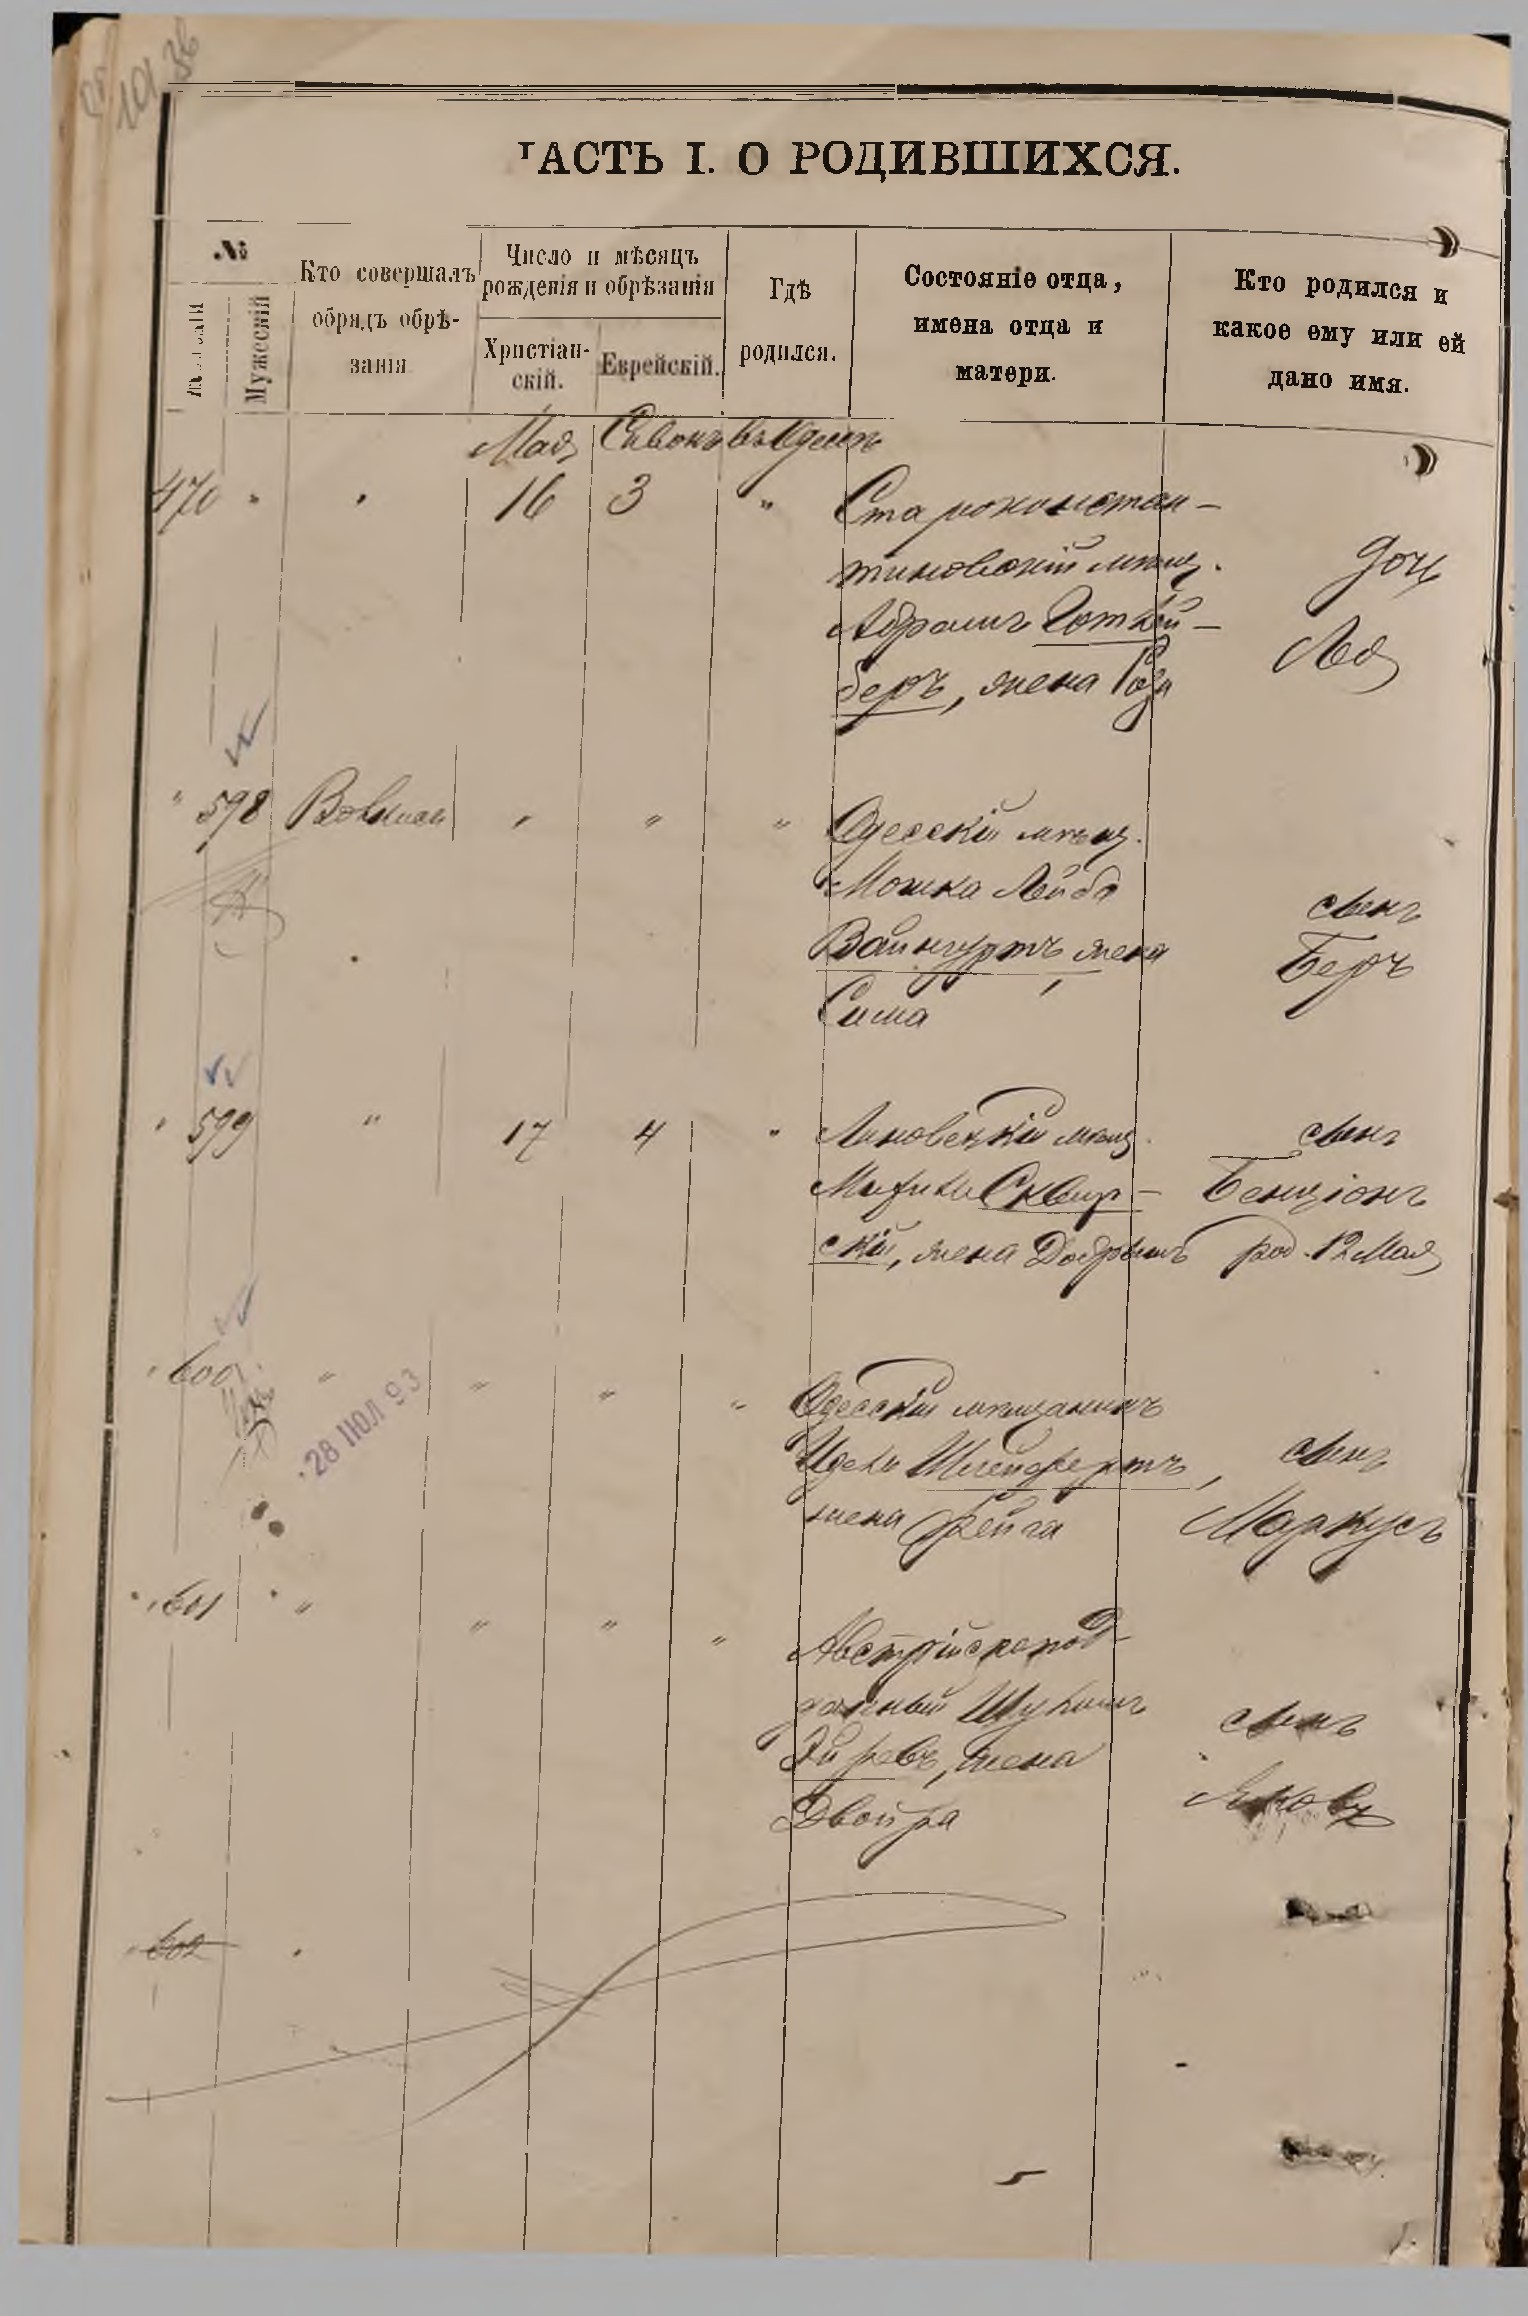 ЧАСТЬ I. О РОДИВШИХСЯ.
№
Женскій
Мужескій
Кто совершалъ
обрядъ обрѣ-
занія
Число и мѣсяцъ
рожденія и обрѣзанія
Христіан-
скій.
Еврейскій.
Гдѣ
родился.
Состояніе отца,
имена отца и
матери.
Кто родился и
какое ему или ей
дано имя.
Мая Сивонъ въ Одессѣ
470 " " 16 3 " Староконстан-
тиновскій мѣщ.
Абрамъ Готлой-
беръ, жена Роза
дочь
Лея
" 598 " " " Одесскій мѣщ.
Мошка Лейба
Вайнгуртъ, жена
Сима
сынъ
Беръ
" 599 " 17 4 " Линовецкій мѣщ.
Сквир-
скій, жена Добрышъ
сынъ
Бенціонъ
род. 12 Мая
" 600 " " " " Одесскій мѣщанинъ
жена Фейга
сынъ
Маркусъ
28 ІЮЛ 93
" 601 " " " " Австрійскопод-
данный
жена
Двойра
сынъ
Яковъ
" 602